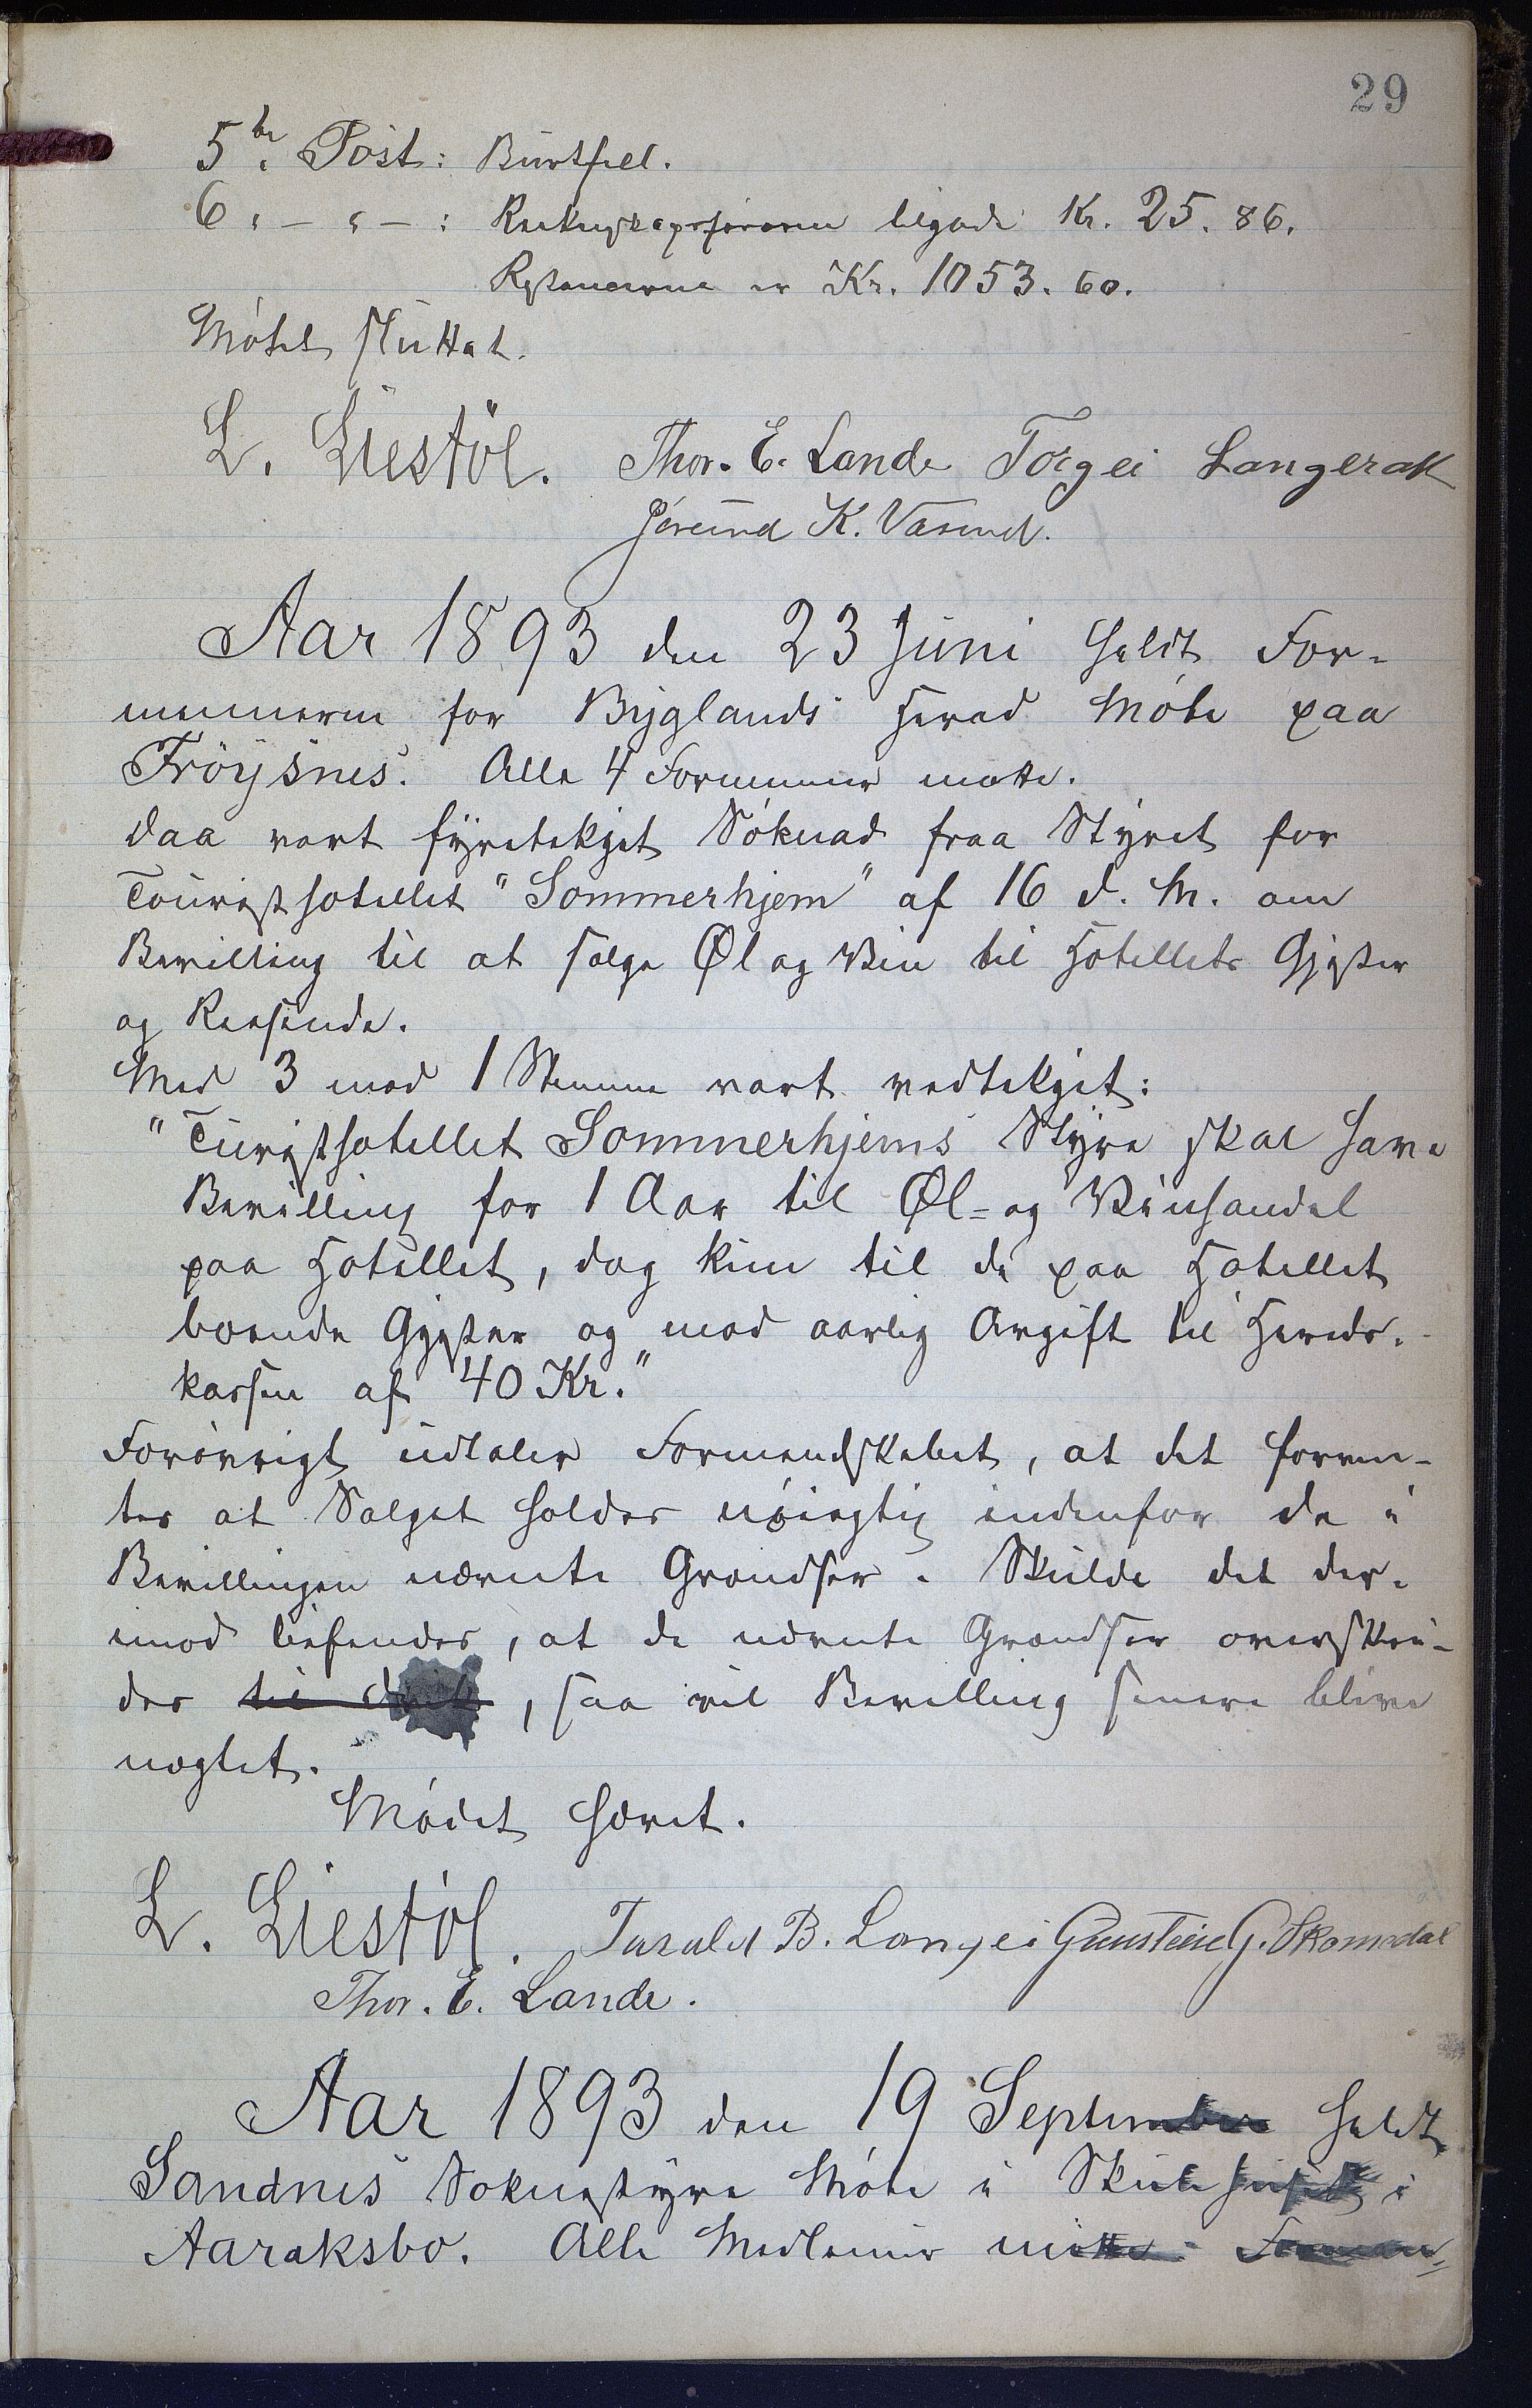 29
5te Post: Burtfell.
6 " - " - : Rekneskapsføraren tilgode Kr. 25. 86.
Restancerne er Kr. 1053. 60.
Møtet sluttat.
L. Liestøl. Thor. E. Lande Torgei Langerak
Jørund K. Væsend.
Aar 1893 den 23 Juni heldt For-
mennerne for Byglands Herad Møte paa
Frøysnes. Alle 4 Formenner møtte.
Daa vart fyreteket Søknad fraa Styret for
Touristhotellet "Sommerhjem" af 16 d. M. om
Bevilling til at sælge Øl og Vin til Hotellets Gjester
og Reisende.
Med 3 mod 1 Stemme vart vedtekjet:
"Turisthotellet Sommerhjems Styre skal have
Bevilling for 1 Aar til Øl- og Vinhandel
paa Hotellet, dog kun til de paa Hotellet
boende Gjester og mod aarlig Avgift til Herads-
kassen af 40 Kr."
Forøvrigt udtaler Formandskabet, at det forven-
tes at Salget holdes nøiagtig indenfor de i
Bevillingen nævnte Grændser. Skulde det der-
imod befindes, at de nævnte Grændser overskri-
des til , saa vil Bevilling senere blive
nægtet.
Mødet hævet.
L. Liestøl. Tarald B. Langei Gunstein G. Skomedal
Thor. E. Lande.
Aar 1893 den 19 September heldt
Sandnes Soknestyre Møte i Skulehuset i
Aaraksbo. Alle Medlemer møtte. Forman-